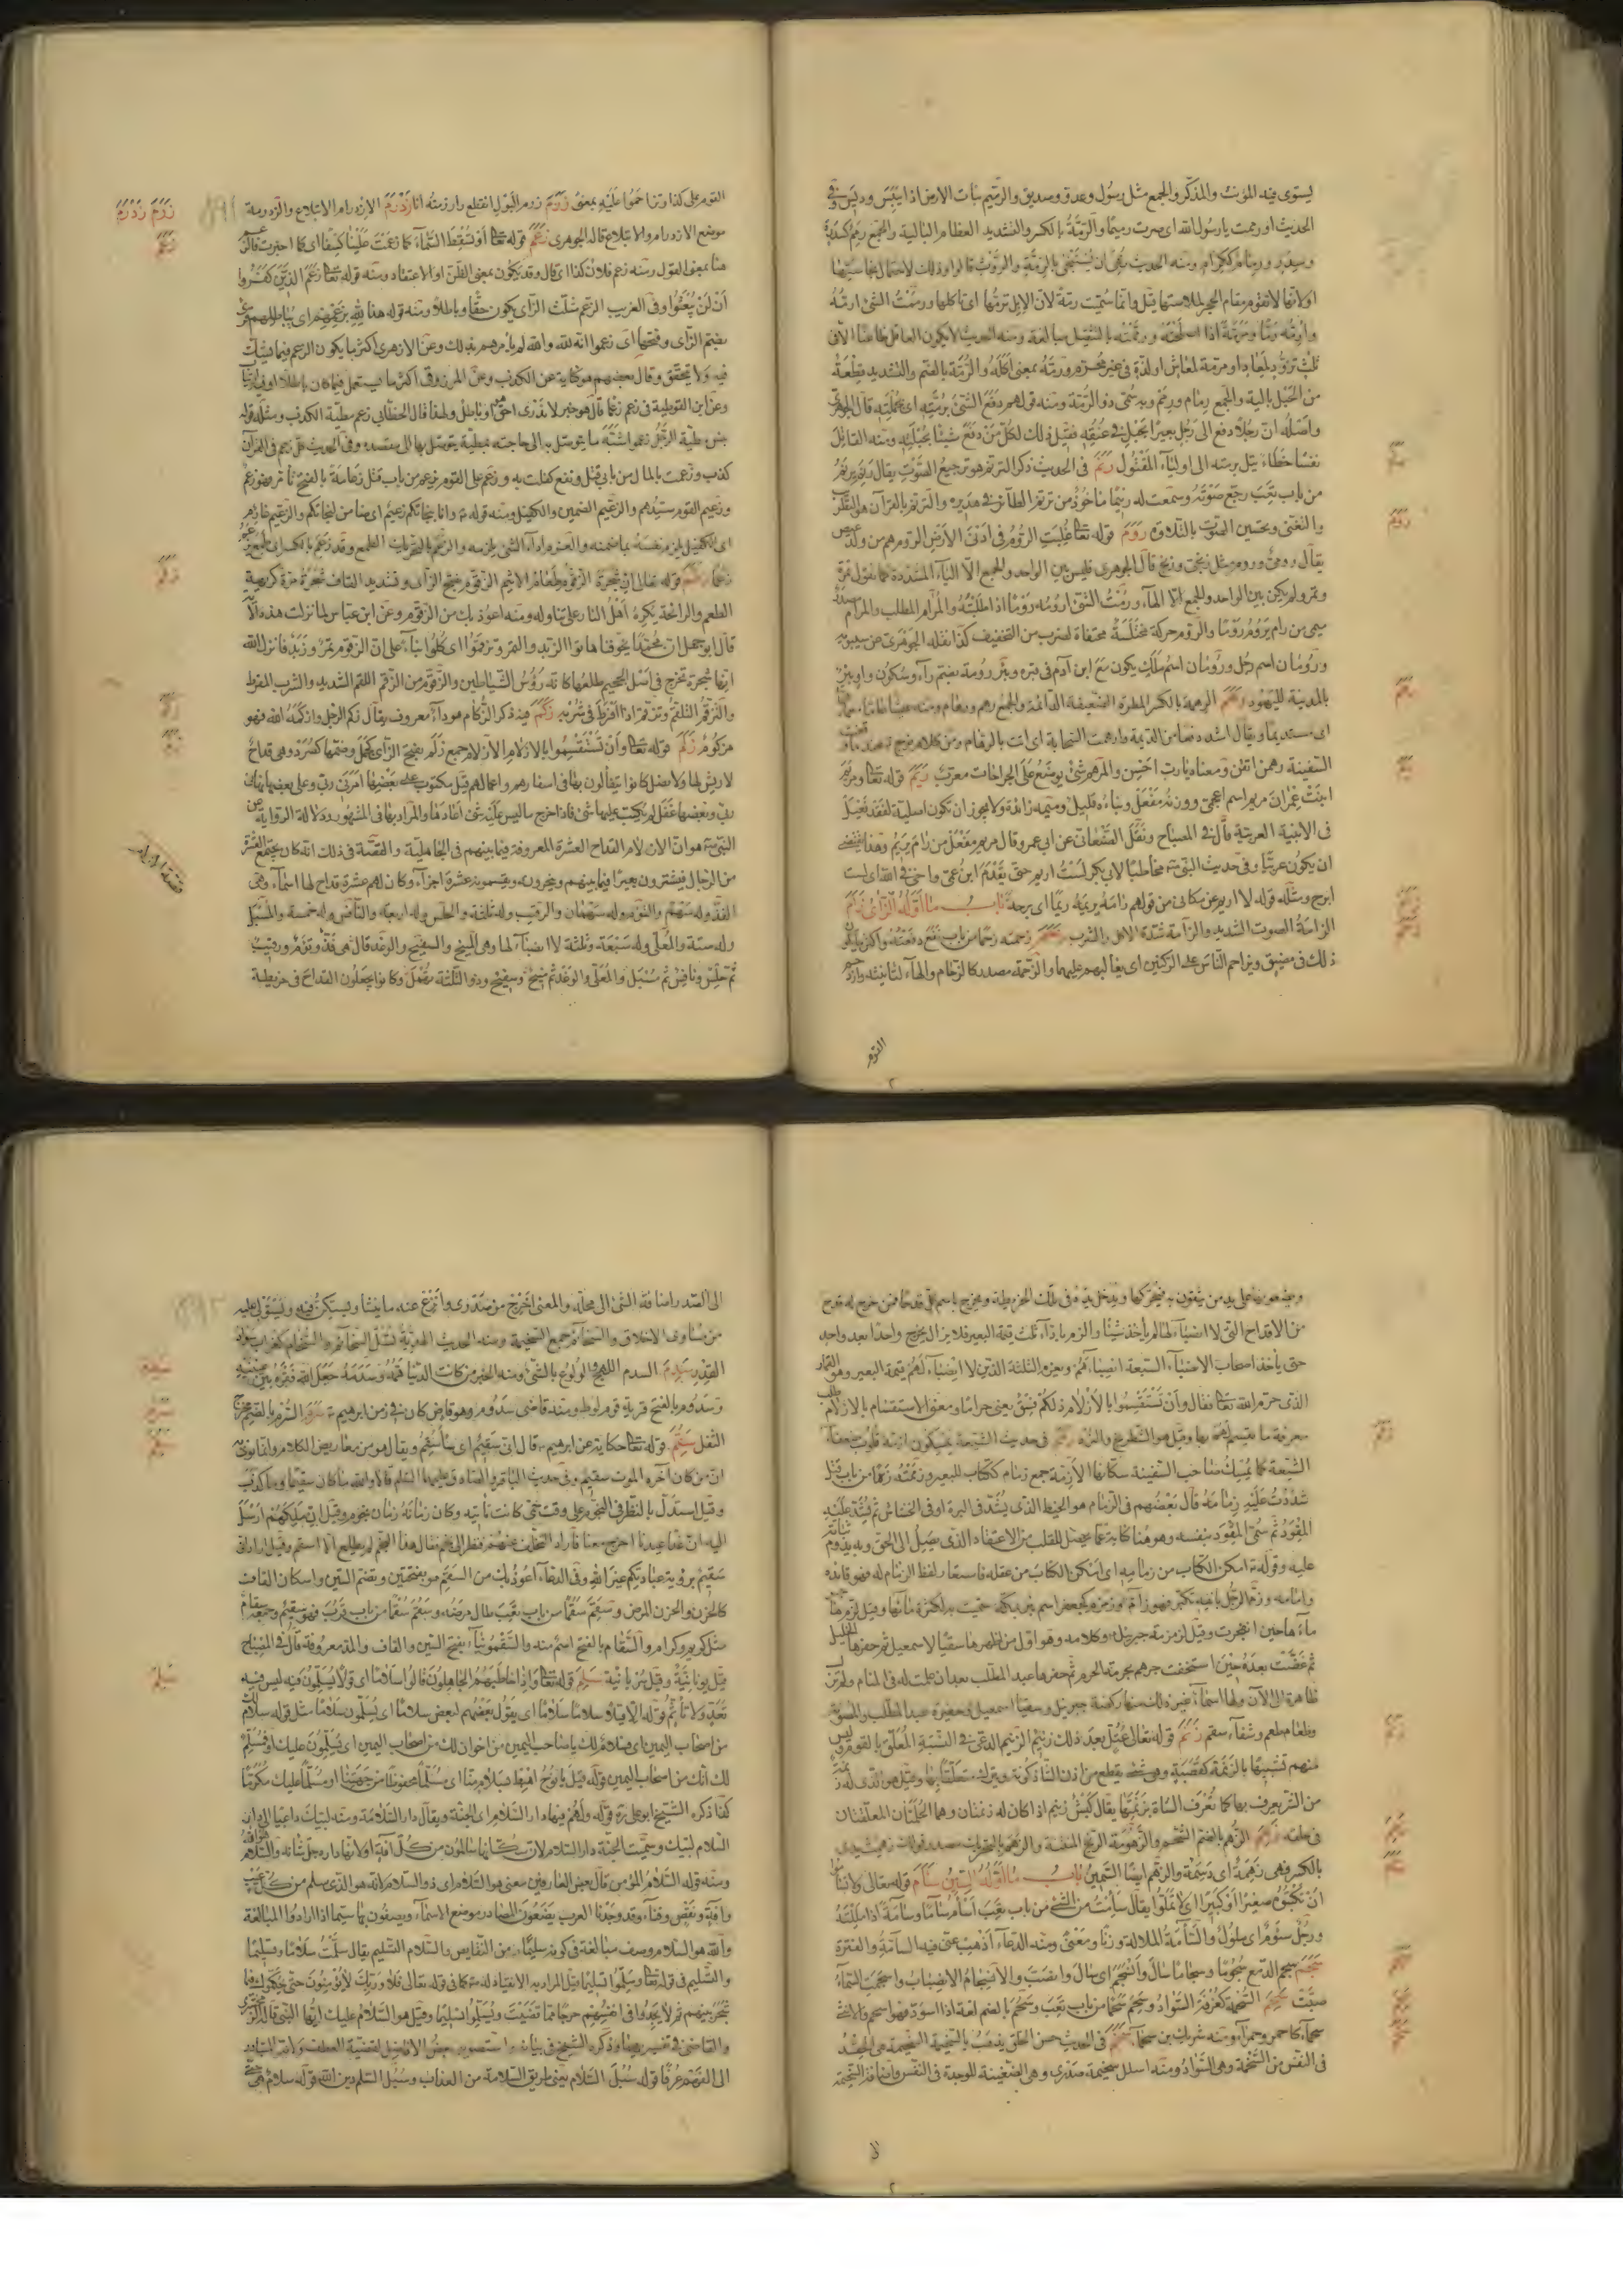 يستوى فيه المؤنث والمذكر والجمع مثل رسول وعدو وصديق والرميم نبات الارض اذا يبس ودرس وفى
الحديث اورممت يارسول الله اى صرت رميما والرمة بالكسر والتشديد العظام البالية والجمع رمم كسدرة
وسدر ورمام ككرام ومنه الحديث نهى ان يستنجى بالرمة والروث قالوا وذلك لاحتمال نجاستها
اولانها لا تقوم مقام الحجر لملاستها قيل وانما سميت رمة لان الابل ترمها اى تاكلها ورممت الشئ ارمه
وارمه رما ومرمة اذا اصلحته ورممته بالتثقيل مبالغة ومنه الحديث لا يكون العاقل ظاعنا الا فى
ثلث تزود لمعاد او مرمة لمعاش او لذة فى غير محرم ورمه بمعنى اكله والرمة بالضم والتشديد قطعة
من الحبل بالية والجمع رمام ورمم وبه سمى ذو الرمة ومنه قولهم دفع الشئ برمته اى بجملته قال الجوهرى
واصله ان رجلا دفع الى رجل بعيرا بحبل فى عنقه فقيل ذلك لكل من دفع شيئا بجملته ومنه القاتل
نفسا خطاء يتل برمته الى اولياء المقتول رنم فى الحديث ذكر الترنم هو ترجيع الصوت يقال رنم يرنم
من باب تعب رجع صوته وسمعت له رنيما ماخوذ من ترنم الطائر فى هديره والترنم بالقرآن هو التطرب
والتغنى وتحسين الصوت بالتلاوة روم قوله تعا غلبت الروم فى ادنى الارض الروم هم من ولد عيص
يقال رومى وروم مثل زنجى وزنج قال الجوهرى فليس بين الواحد والجمع الا الياء المشددة كما يقول تمرة
وتمر ولم يكن بين الواحد والجمع الا الهاء ورمت الشئ ارومه روما اذا طلبته والمرام المطلب والمرام مصدر
ميمى من رام يروم روما والروم حركة مختلسة مختفاة لضرب من التخفيف كذا نقله الجوهرى عن سيبويه
ورومان اسم رجل ورومان اسم ملك يكون مع ابن آدم فى قبره وبئر رومة بضم راء وسكون واو بئر
بالمدينة لليهود رهم الرهمة بالكسر المطرة الضعيفة الدائمة والجمع رهم ورهام ومنه
السفينة رهمن اتقن ومعناه يارب احسن والمرهم شئ يوضع على الجراحات معرب ريم قوله تعا ومريم
ابنت عمران مريم اسم اعجمى ووزنه مفعل وبناءه قليل وميمه زائدة ولا يجوز ان تكون اصلية لفقد فعيل
فى الابنية العربية قال فى المصباح ونقل الصغانى عن ابى عمرو قال مريم مفعل من رام يريم وهذا يقتضى
ان يكون عربيا وفى حديث النبى ص مخاطبا لابى بكر لست اريم حتى يقدم ابن عمى واخى فى الله اى لست
ابرح ومثله قوله لا اريم عن مكانى من قولهم رامه يريمه ريما اى برحه باب ما اوله الزاى زأم
الزأمة الصوت الشديد والزأمة شدة الاكل والشرب زحم زحمته زحما من باب نفع دفعته واكثر ما يكون
ذلك فى مضيق ويزاحم الناس على الركنين اى يغالبهم عليهما والزحمة مصدر كالزحام والهاء لتانيثه وازدحم
القوم
القوم على كذا وتزاحموا عليه بمعنى زرم زرم البول انقطع وازرمته انا زردم الازدرام الابتلاع والزردمة
موضع الازدرام والابتلاع قاله الجوهرى زعم قوله تعا او تسقط السماء كما زعمت علينا كسفا اى كما اخبرت فالزعم
هنا بمعنى القول ومنه زعم فلان كذا اى قال وقد يكون بمعنى الظن او الاعتقاد ومنه قوله تعا زعم الذين كفروا
ان لن يبعثوا وفى الغريب الزعم مثلث الزاى يكون حقا وباطلا ومنه قوله هذا لله بزعمهم اى بباطلهم قرئ
بضم الزاى وفتحها اى زعموا انه لله والله لم يامرهم بذلك وعن الازهرى اكثر ما يكون الزعم فيما يشك
فيه ولا يتحقق وقال بعضهم هو كناية عن الكذب وعن المرزوقى اكثر ما يستعمل فيما كان باطلا او فيه ارتياب
وعن ابن القوطية فى زعم زعما قال هو خبر لا يدرى احق هو او باطل ولهذا قال الخطابى زعم مطية الكذب ومثله قوله
بئس مطية الرجل زعموا شبه ما يتوسل به الى حاجته بمطية يتوصل بها الى مقصده وفى الحديث كل زعم فى القرآن
كذب وزعمت بالمال من بابى قتل ونفع كفلت به وزعم على القوم فهو زعيم من باب قتل زعامة بالفتح تأمر فهو زعيم
وزعيم القوم سيدهم والزعيم الضمين والكفيل ومنه قوله ع وانا بنجاتكم زعيم اى ضامن لنجاتكم والزعيم غارم
اى الكفيل يلزم نفسه بما ضمنه والغرم اداء الشئ يلزمه والزعم بالتحريك الطمع وقد زعم بالكسر اى طمع يزعم
زعما زقم قوله تعالى ان شجرة الزقوم طعام الاثيم الزقوم بفتح الزاى وتشديد القاف شجرة مرة كريهة
الطعم والرائحة يكره اهل النار على تناوله ومنه اعوذ بك من الزقوم وعن ابن عباس لما نزلت هذه الآية
قال ابو جهل ان محمدا يخوفنا هاتوا الزبد والتمر وتزقموا اى كلوا بناء على ان الزقوم تمر وزبد فانزل الله
انها شجرة تخرج فى اصل الجحيم طلعها كانه رؤس الشياطين والزقوم من الزقم اللقم الشديد والشرب المفرط
والتزقم التلقم وتزقم اذا افرط فى شربه زكم فيه ذكر الزكام هو داء معروف يقال زكم الرجل وازكمه الله فهو
مزكوم زلم قوله تعا وان تستقسموا بالازلام الازلام جمع زلم بفتح الزاى كجمل وضمها كصرد وهى قداح
لا ريش لها ولا نصل كانوا يتفألون بها فى اسفارهم واعمالهم قيل مكتوب على بعضها امرنى ربى وعلى بعضها نهانى
ربى وبعضها غفل لم يكتب عليها شئ فاذا خرج ما ليس عليه شئ اعادها والمراد بها فى المشهور ودلالة الرواية عن
النبى ص هو ان الازلام القداح العشرة المعروفة فيما بينهم فى الجاهلية والقصة فى ذلك انه كان يجتمع العشرة
من الرجال فيشترون بعيرا فيما بينهم وينحرونه ويقسمونه عشرة اجزاء وكان لهم عشرة قداح لها اسماء وهى
الفذ وله سهم والتوءم وله سهمان والرقيب وله ثلثة والحلس وله اربعة والنافس وله خمسة والمسبل
وله ستة والمعلى وله سبعة وثلثة لا انصباء لها وهى المنيح والسفيح والوغد قال هى فذ وتوءم ورقيب
ثم حلس ونافس ثم مسبل والمعلى والوغد ثم منيح وسفيح وذو الثلثة تهمل وكانوا يجعلون القداح فى خريطة
زرم زردم
زعم
زقم
زكم
زلم
قصة الازلام
ويضعونها على يد من يثقون به فيحركها ويدخل يده فى تلك الخريطة ويخرج باسم كل قدحا فمن خرج له قدح
من الاقداح التى لا انصباء لها لم ياخذ شيئا والزم باداء ثلث قيمة البعير فلا يزال يخرج واحدا بعد واحد
حتى ياخذ اصحاب الانصباء السبعة انصباءهم ويغرم الثلثة الذين لا انصباء لهم قيمة البعير وهو القمار
الذى حرم الله تعا فقال وان تستقسموا بالازلام ذلكم فسق يعنى حراما ومعنى الاستقسام بالازلام طلب
معرفة ما يقسم لهم بها وقيل هو الشطرنج والنرد زمم فى حديث الشيعة
الشيعة كما يمسك صاحب السفينة سكانها الازمة جمع زمام ككتاب للبعير وزممته زما من باب قتل
شددت عليه زمامه قال بعضهم فى الزمام هو الخيط الذى يشد فى البرة او فى الخشاش ثم يشد عليه
المقود ثم سمى المقود بنفسه وهو هنا كناية عما يحصل للقلب من الاعتقاد الذى يصل الى الحق وبه يدوم ثباته
عليه وقوله ع امكن الكتاب من زمامه اى امكن الكتاب من عقله فاستعار لفظ الزمام له فهو قائده
وامامه وزم الرجل بانفه تكبر فهو زام وزمزم كجعفر اسم بئر بمكة سميت به لكثرة مائها وقيل لزم هاجر
ماءها حين انفجرت وقيل لزمزمة جبرئيل وكلامه وهو اول من اظهرها سقيا لاسمعيل ثم حفرها الخليل
ثم غضت بعده حين استخفت جرهم بحرمة الحرم ثم حفرها عبد المطلب بعد ان علمت له فى المنام ولم تزل
ظاهرة الى الآن ولها اسماء غير ذلك منها ركضة جبرئيل وسقيا اسمعيل وحفيرة عبد المطلب والمصونة
وطعام مطعم وشفاء سقم زنم قوله تعالى عتل بعد ذلك زنيم الزنيم الدعى فى النسبة المعلق بالقوم وليس
منهم تشبيها بالزنمة كقصبة وهى شئ يقطع من اذن الشاة كونه ويترك معلقا بها وقيل هو الذى له زنمة
من الشر يعرف بها كما تعرف الشاة بزنمتها يقال كبش زنيم اذا كان له زنمتان وهما الحلمتان المعلقتان
فى حلقه زهم الزهم بالضم الشحم والزهومة الريح المنتنة والزهم بالتحريك مصدر قولك زهمت يدى
بالكسر فهى زهمة اى دسمة والزهم ايضا السمين باب ما اوله السين سأم قوله تعالى ولا تسأموا
ان تكتبوه صغيرا او كبيرا اى لا تملوا يقال سأمت من الشئ من باب تعب اسأم سأما وسأمة اذا مللته
ورجل سؤم اى ملول والسآمة الملالة وزنا ومعنى ومنه الدعاء اذهب عنى فيه السآمة والفترة
سجم سجم الدمع سجوما وسجاما سال وانسجم اى سال وانصب والانسجام الانصباب واسجمت السماء
صبت سحم السحمة كغرفة السواد وسحم سحما من باب تعب وسحم بالضم لغة اذا اسود فهو اسحم والانثى
سحماء كاحمر وحمراء ومنه شريك بن سحماء سخم فى الحديث حسن الخلق يذهب بالسخيمة السخيمة هى الحقد
فى النفس من السخمة وهى السواد ومنه اسلل سخيمة صدرى وهى الضغينة الموجدة فى النفس واضافة السخيمة
الى
الى الصدر اضافة الشئ الى محله والمعنى اخرج من صدرى وانزع عنه ما ينشا ويستكن فيه ويستولى عليه
من مساوى الاخلاق والسخائم جمع السخيمة ومنه الحديث الهدية تسل السخائم والسخام كغراب سواد
القدر سدم السدم اللهج والولوع بالشئ ومنه الخبر من كانت الدنيا همه وسدمه جعل الله فقره بين عينيه
وسدوم بالفتح قرية قوم لوط ومنه قاضى سدوم وهو قاض كان فى زمن ابرهيم ع سرم السرم بالضم مخرج
الثفل سقم قوله تعا حكاية عن ابرهيم ع قال انى سقيم اى سأسقم ويقال هو من معاريض الكلام وانما نوى
ان من كان آخره الموت سقيم وفى حديث الباقر والصادق عليهما السلام قالا والله ما كان سقيما وما كذب
وقيل استدل بالنظر فى النجوم على وقت حمى كانت تاتيه وكان زمانه زمان نجوم وقيل ان ملكهم ارسل
اليه ان غدا عيدنا اخرج معنا فاراد التخلف عنهم فنظر الى نجم فقال هذا النجم لم يطلع الا اسقم وقيل اراد انى
سقيم برؤية عبادتكم غير الله وفى الدعاء اعوذ بك من السقم هو بفتحتين وبضم السين واسكان القاف
كالحزن والحزن المرض وسقم سقما من باب تعب طال مرضه وسقم سقما من باب قرب فهو سقيم وجمعه سقام
مثل كريم وكرام والسقام بالفتح اسم منه والسقمونيا بفتح السين والقاف والمد معروفة قال فى المصباح
قيل يونانية وقيل سريانية سلم قوله تعا واذا خاطبهم الجاهلون قالوا سلاما اى قولا يسلمون فيه ليس فيه
تعد ولا تأثم قوله الا قيلا سلاما سلاما اى يقول بعضهم لبعض سلاما اى يسلمون سلاما مثل قوله سلام لك
من اصحاب اليمين اى فسلام لك يا صاحب اليمين من اخوان لك من اصحاب اليمين اى يسلمون عليك او فسلم
لك انك من اصحاب اليمين قوله قيل يا نوح اهبط بسلام منا اى مسلما محفوظا من جهتنا او مسلما عليك مكرما
كذا ذكره الشيخ ابو على ره قوله ولهم فيها دار السلام اى الجنة ويقال دار السلامة ومنه لبيك داعيا الى دار
السلام لبيك وسميت الجنة دار السلام لان سكانها سالمون من كل آفة او لانها داره جل شانه والسلام هو الله
ومنه قوله السلام المؤمن قال بعض العارفين معنى هو السلام اى ذو السلام لانه هو الذى سلم من كل عيب
وآفة ونقص وفناء وقد وجدنا العرب يضعون المصادر موضع الاسماء ويصفون بها سيما اذا ارادوا المبالغة
والله هو السلام وصف مبالغة فى كونه سليما من النقايص والسلام التسليم يقال سلمت سلاما وتسليما
والتسليم فى قوله تعا وسلموا تسليما قيل المراد به الانقياد له ص كما فى قوله تعالى فلا وربك لا يؤمنون حتى يحكموك فيما
شجر بينهم ثم لا يجدوا فى انفسهم حرجا مما قضيت ويسلموا تسليما وقيل هو السلام عليك ايها النبى قاله الزمخشرى
والقاضى فى تفسيرهما وذكره الشيخ فى تبيانه واستصوبه بعض الافاضل لقضية العطف ولانه المتبادر
الى الفهم عرفا قوله سبل السلام يعنى طريق السلامة من العذاب وسبل السلم دين الله قوله سلام هى حتى
سدم
سرم
سقم
سلم